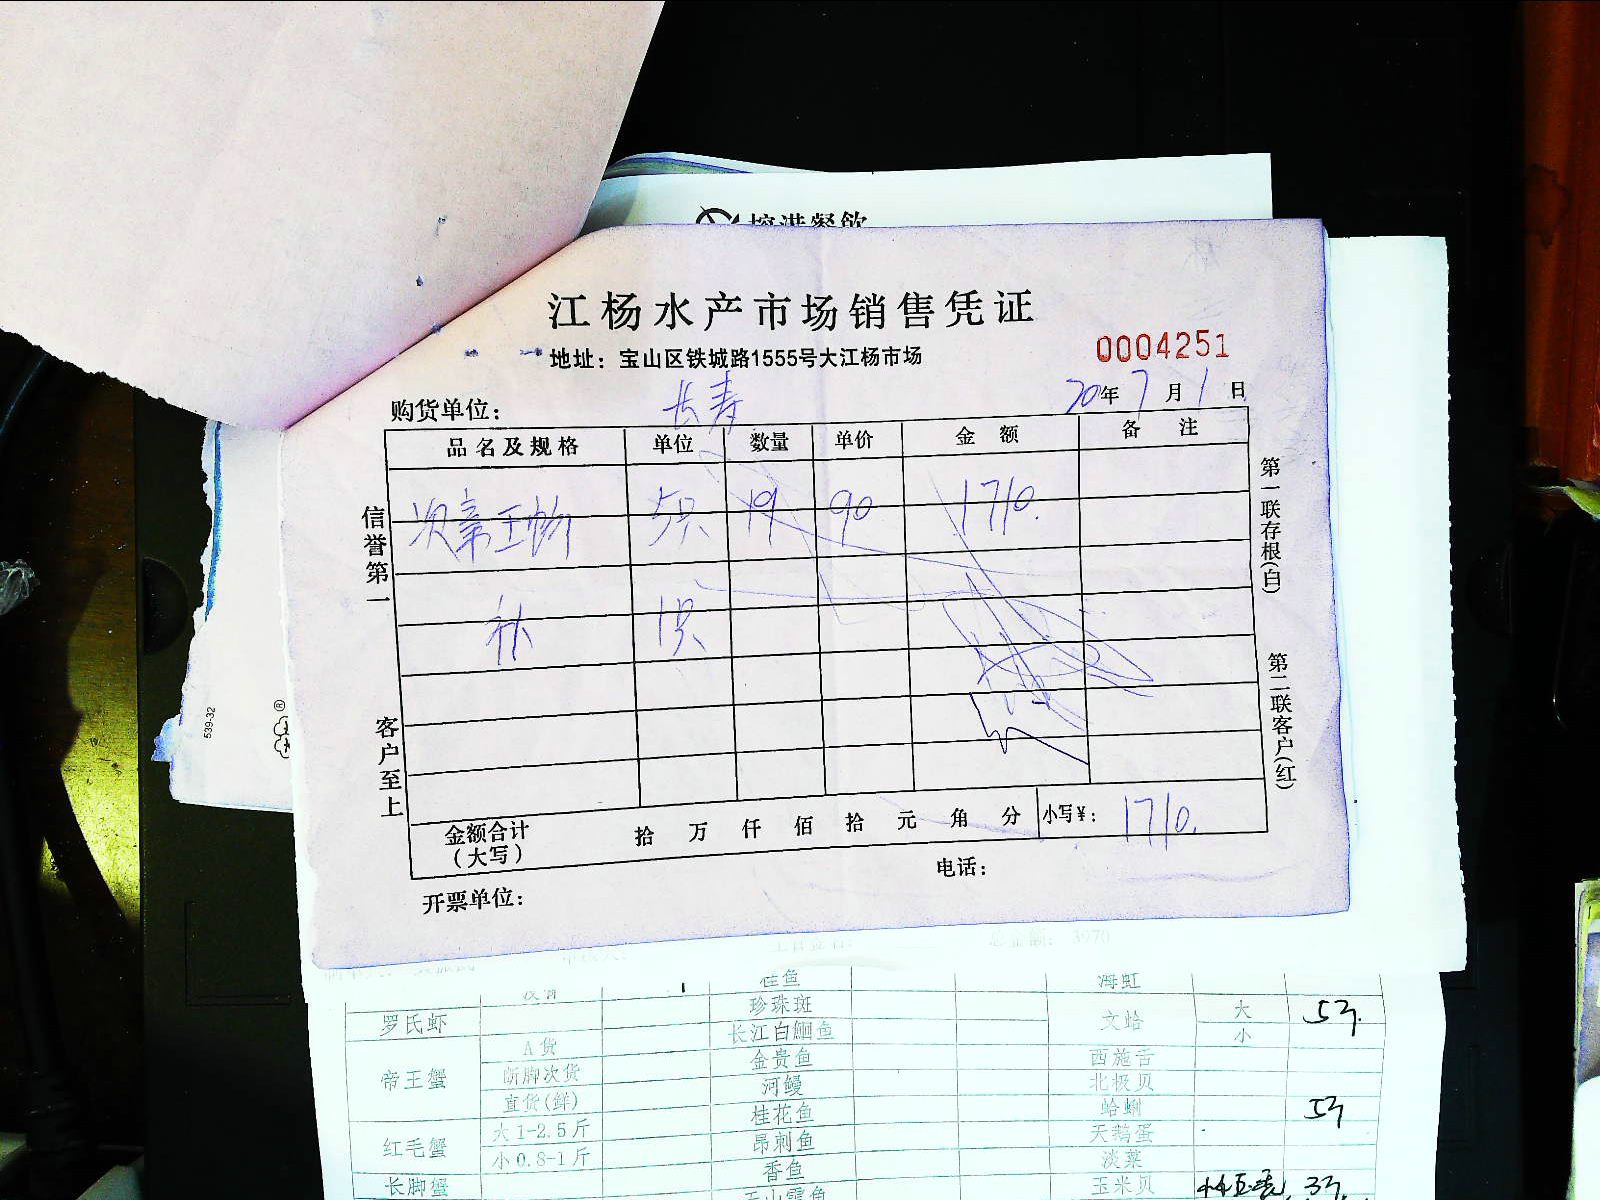 控港餐飲
江杨水产市场销售凭证
地址：宝山区铁城路1555号大江杨市场
0004251
购货单位：长寿
20年7月1日
品名及规格 单位 数量 单价 金额 备注
5只 19 90 1710.
补 1只
金额合计（大写） 拾 万 仟 佰 拾 元 角 分 小写￥：1710.
电话：
开票单位：
信誉第一
客户至上
第一联存根(白)
第二联客户(红)
539-32
总金额： 3970
桂鱼 海虹
罗氏虾 珍珠斑 文蛤 大 5斤
长江白鮰鱼 小
帝王蟹 A货 金贵鱼 西施舌
断脚次货 河鳗 北极贝
直货(鲜) 桂花鱼 蛤蜊 5斤
红毛蟹 大1-2.5斤 昂刺鱼 天鹅蛋
小0.8-1斤 香鱼 淡菜
长脚蟹 玉米贝 3斤